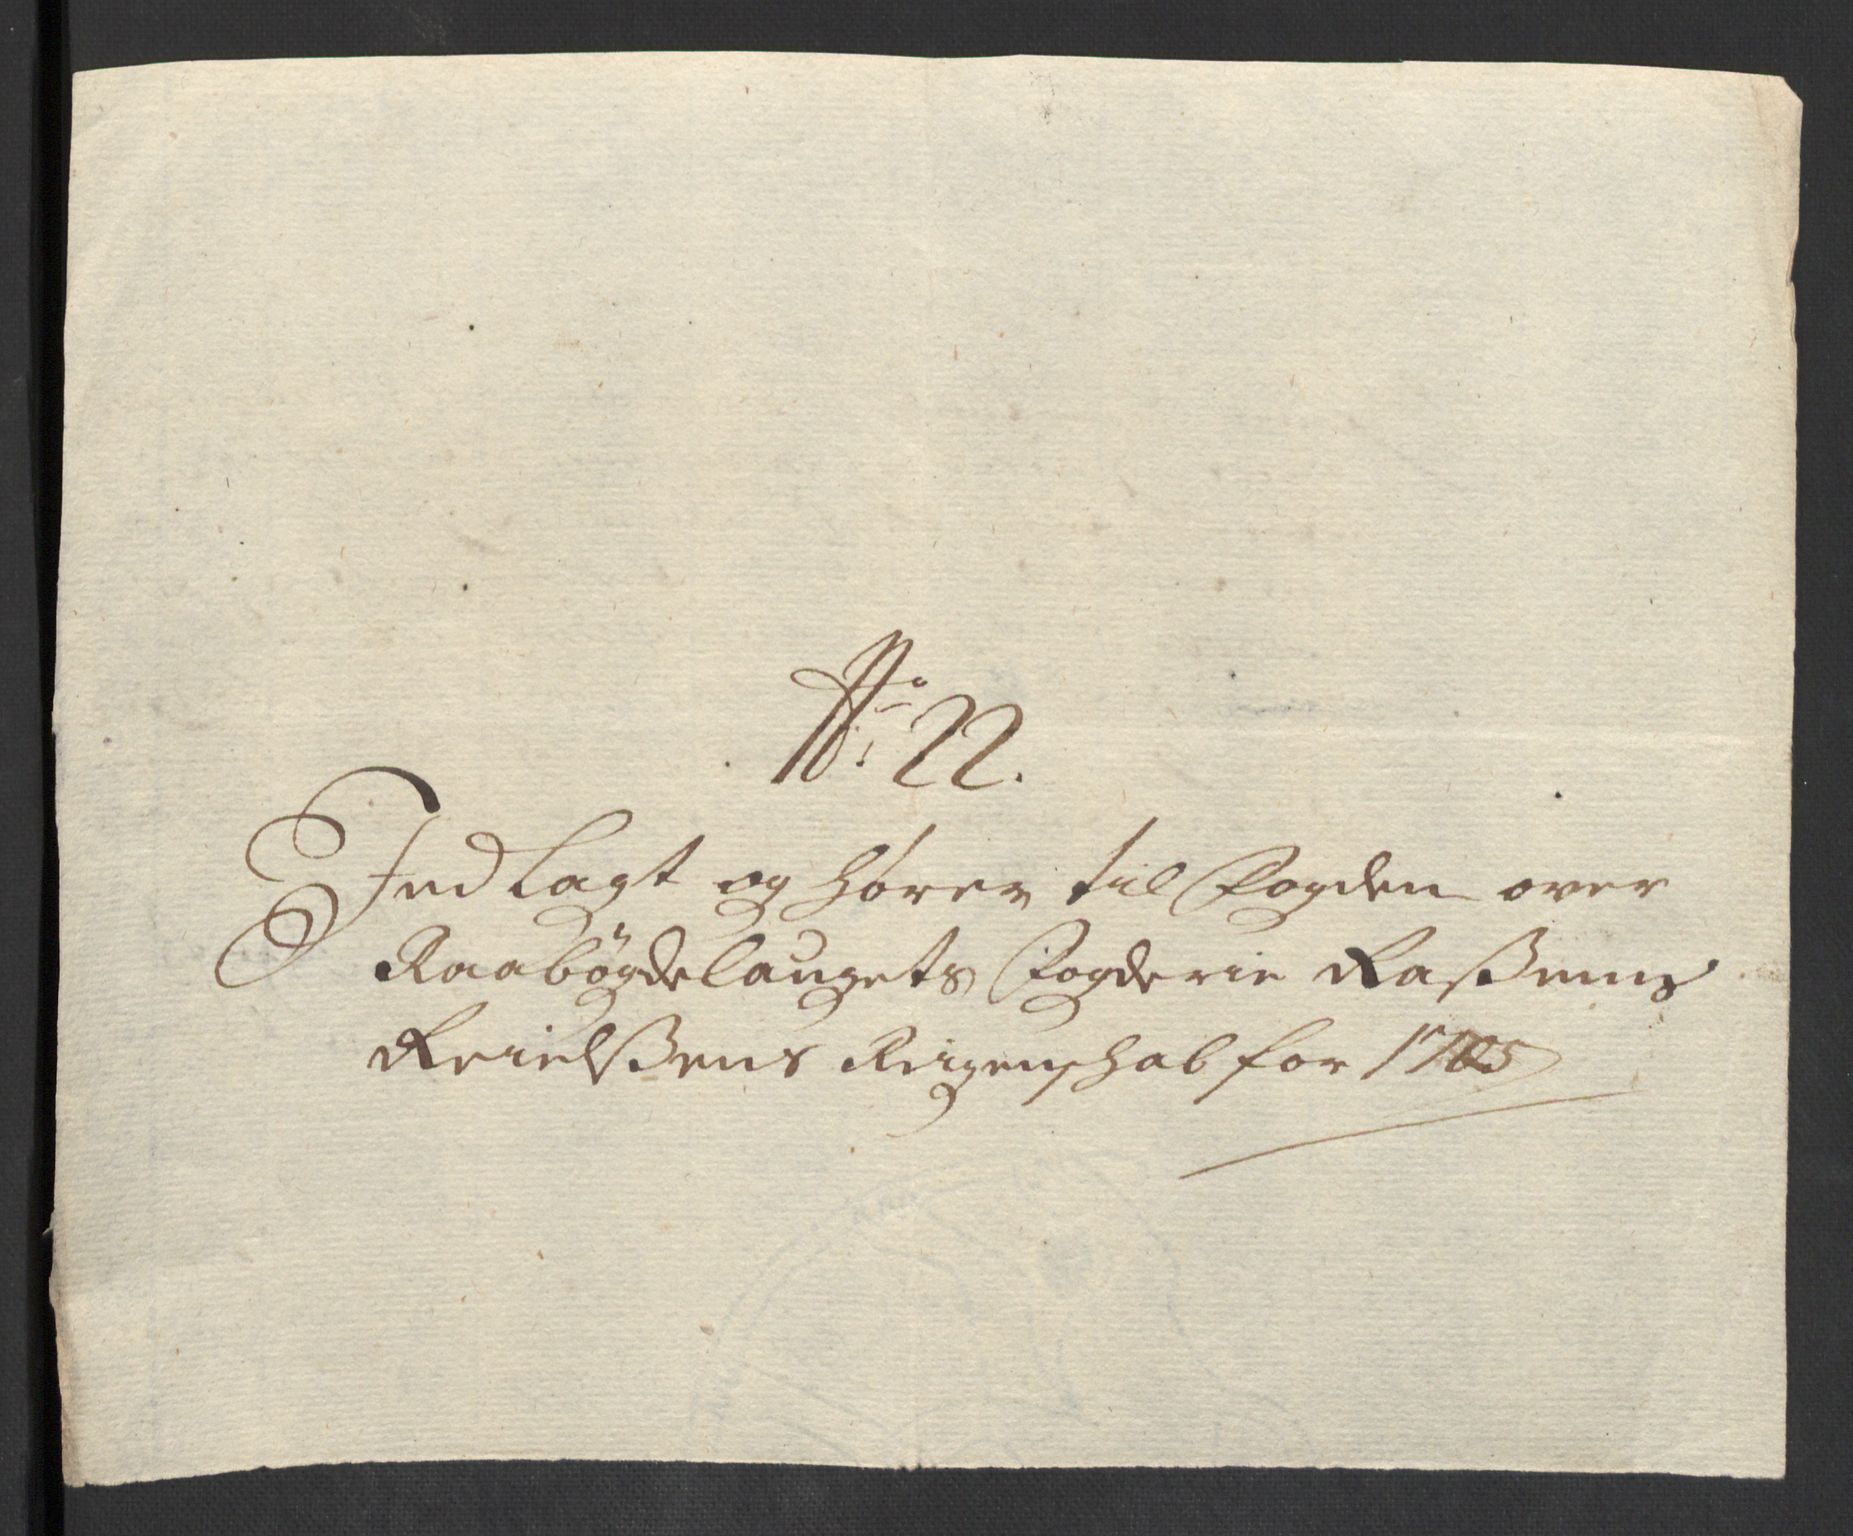 No: 22.
Indlagt og hører til Fogden over
Raabøgdelaugets Fogderie Raßmus
Krielßens Reigenschab for 1705